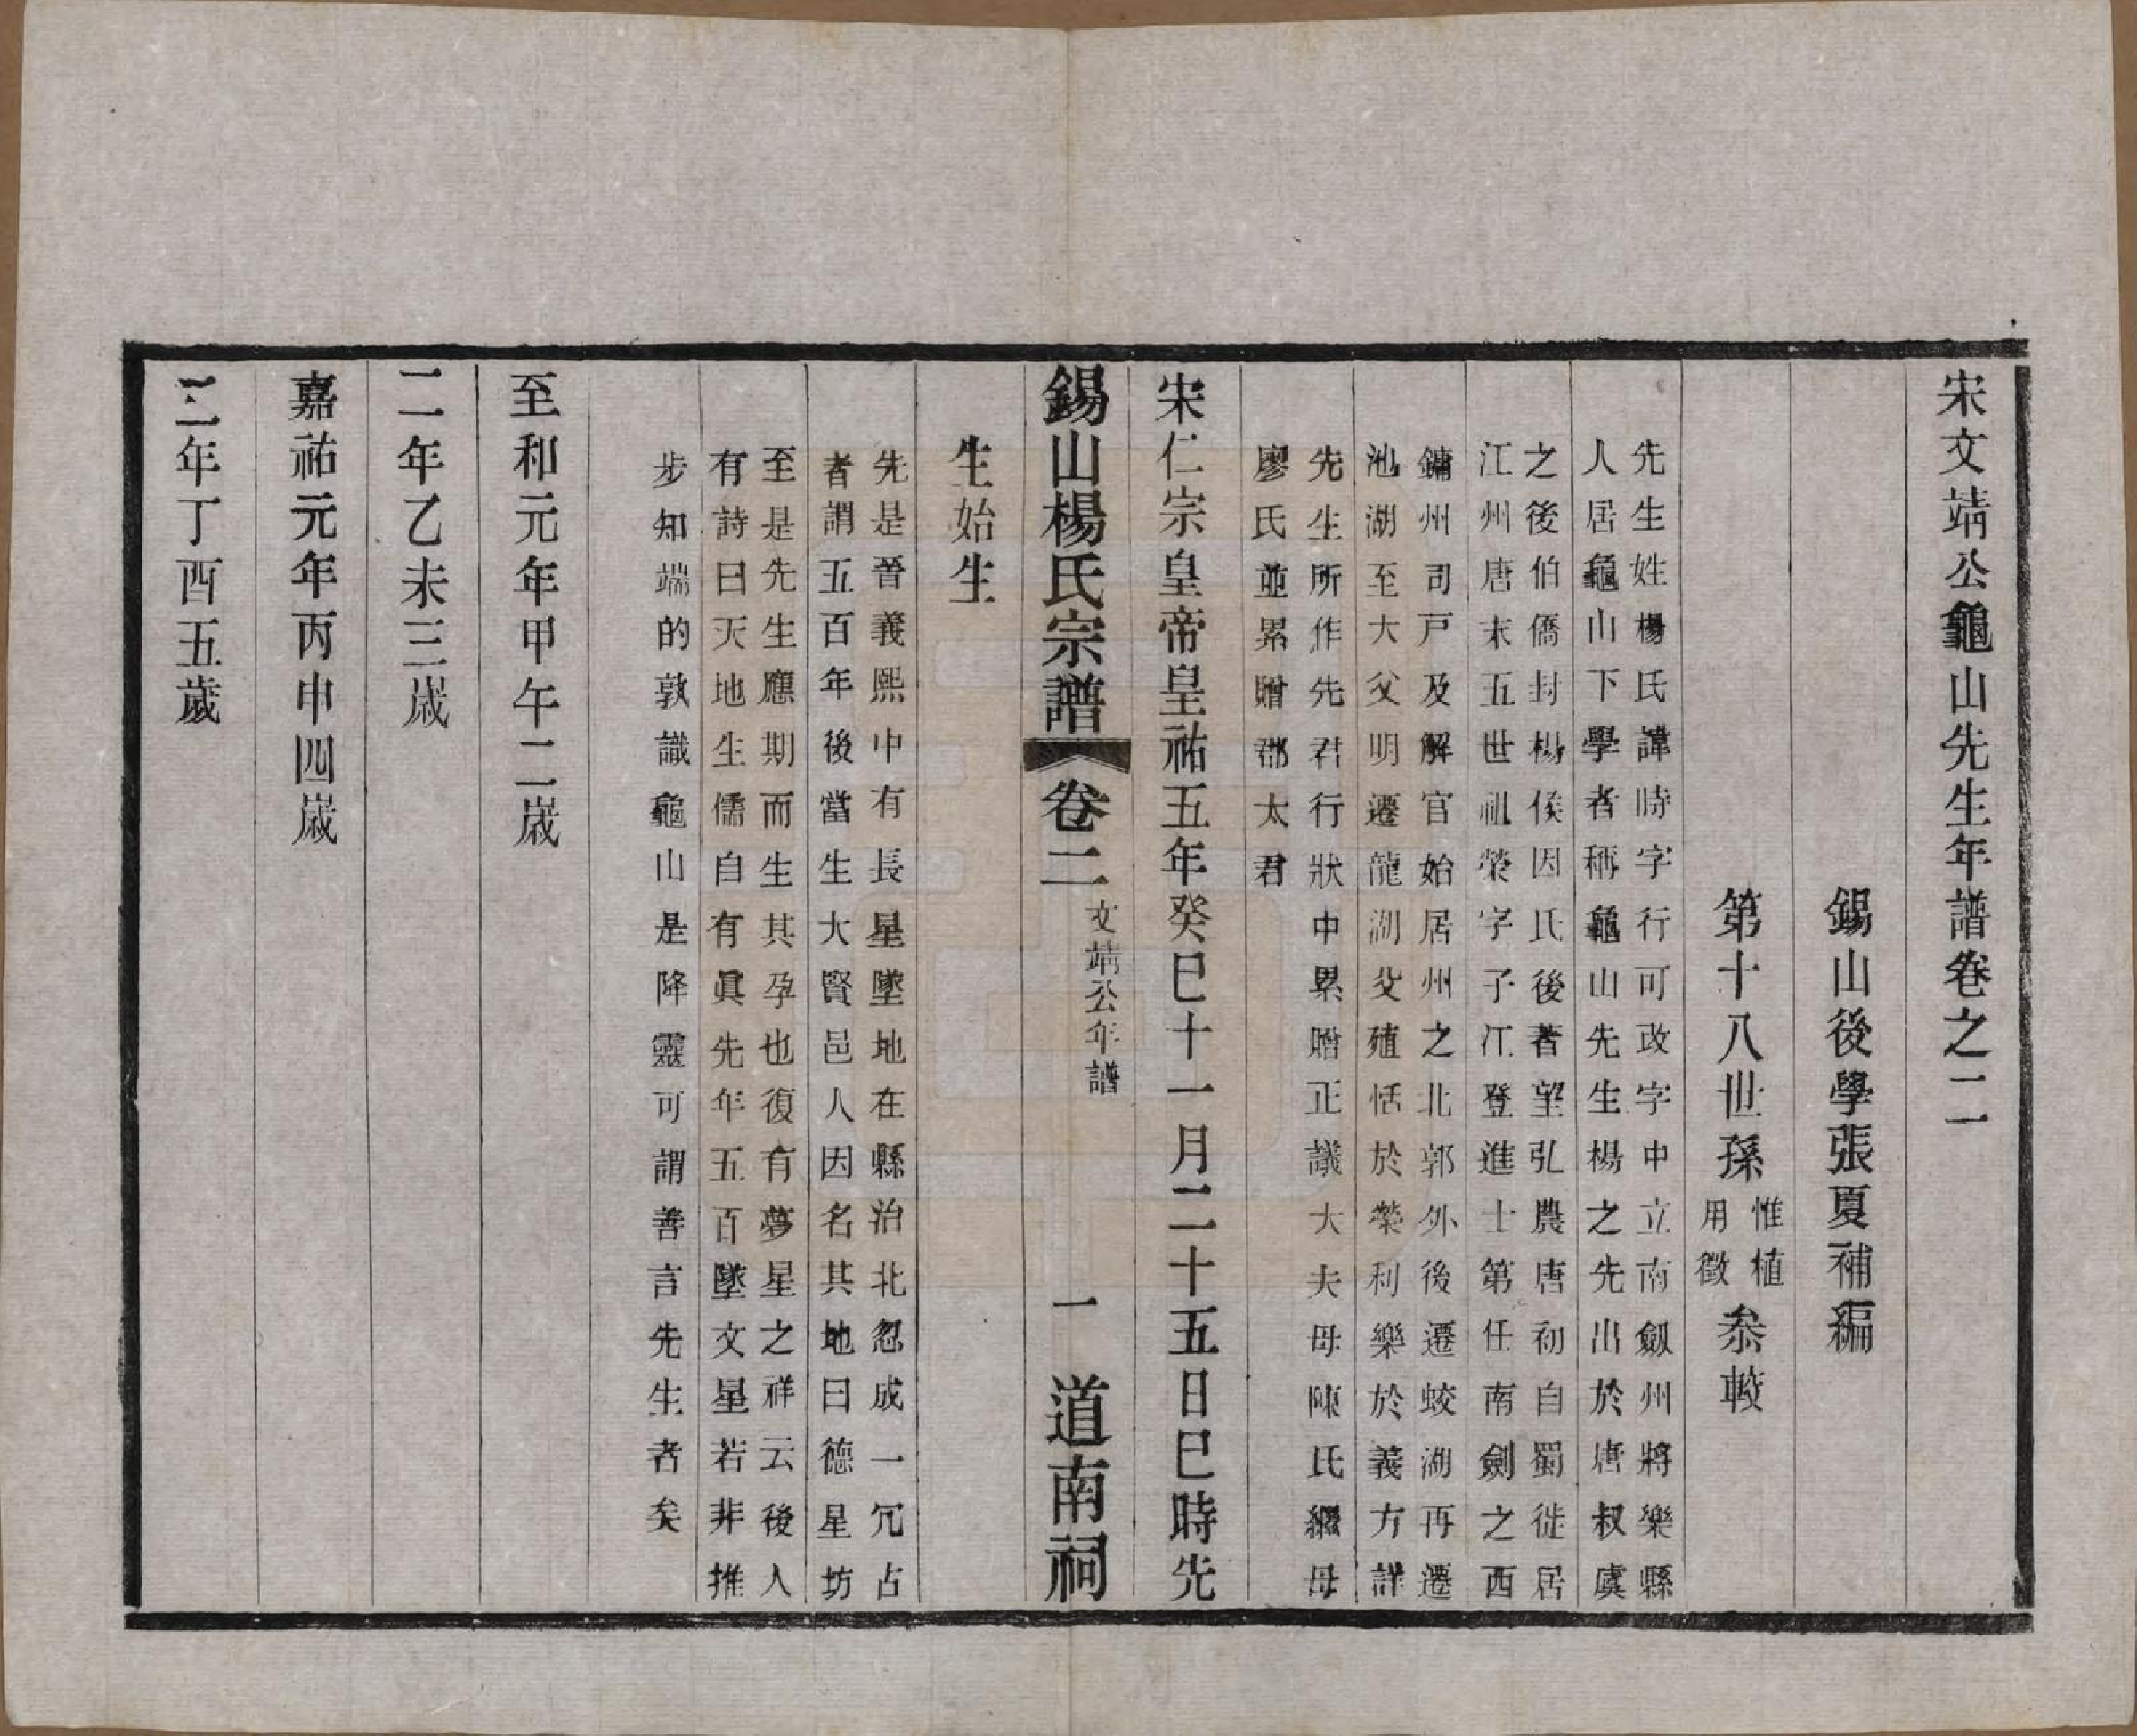 宋文靖公龜山先生年譜卷之二
錫山後學張夏補編
第十八世孫惟植用徵叅較
先生姓楊氏諱時字行可改字中立南劔州將樂縣
人居龜山下學者稱龜山先生楊之先出於唐叔虞
之後伯僑封楊侯因氏後著望弘農唐初自蜀徙居
江州唐末五世祖榮字子江登進士第任南劍之西
鏞州司戸及解官始居州之北郭外後遷蛟湖再遷
池湖至大父明遷龍湖父殖恬於榮利樂於義方詳
先生所作先君行狀中累贈正議大夫母陳氏繼母
廖氏並累贈郡太君
宋仁宗皇帝皇祐五年癸巳十一月二十五日巳時先
錫山楊氏宗譜 卷二 文靖公年譜 一 道南祠
生始生
先是晉義熙中有長星墜地在縣治北忽成一冗占
者謂五百年後當生大賢邑人因名其地曰德星坊
至是先生應期而生其孕也復有夢星之祥云後人
有詩曰天地生儒自有眞先年五百墜文星若非推
步知端的敦識龜山是降靈可謂善言先生者矣
至和元年甲午二歲
二年乙未三歲
嘉祐元年丙申四歲
二年丁酉五歲